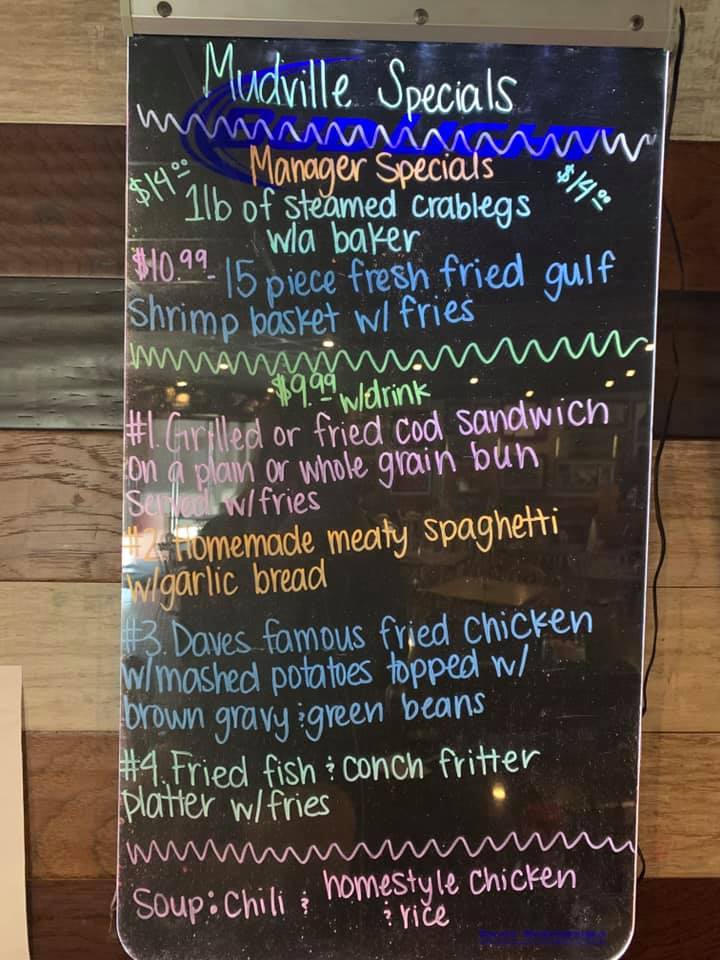 Mudville Specials
Manager Specials
$14.00 $14.00
1lb of steamed crablegs
w/a baker
$10.99 - 15 piece fresh fried gulf
Shrimp basket w/ fries
$9.99 w/drink
#1. Grilled or fried cod sandwich
on a plain or whole grain bun
Served w/fries
#2. Homemade meaty spaghetti
w/garlic bread
#3. Daves famous fried chicken
w/mashed potatoes topped w/
brown gravy & green beans
#4. Fried fish & conch fritter
platter w/fries
Soup: Chili & homestyle chicken
& rice